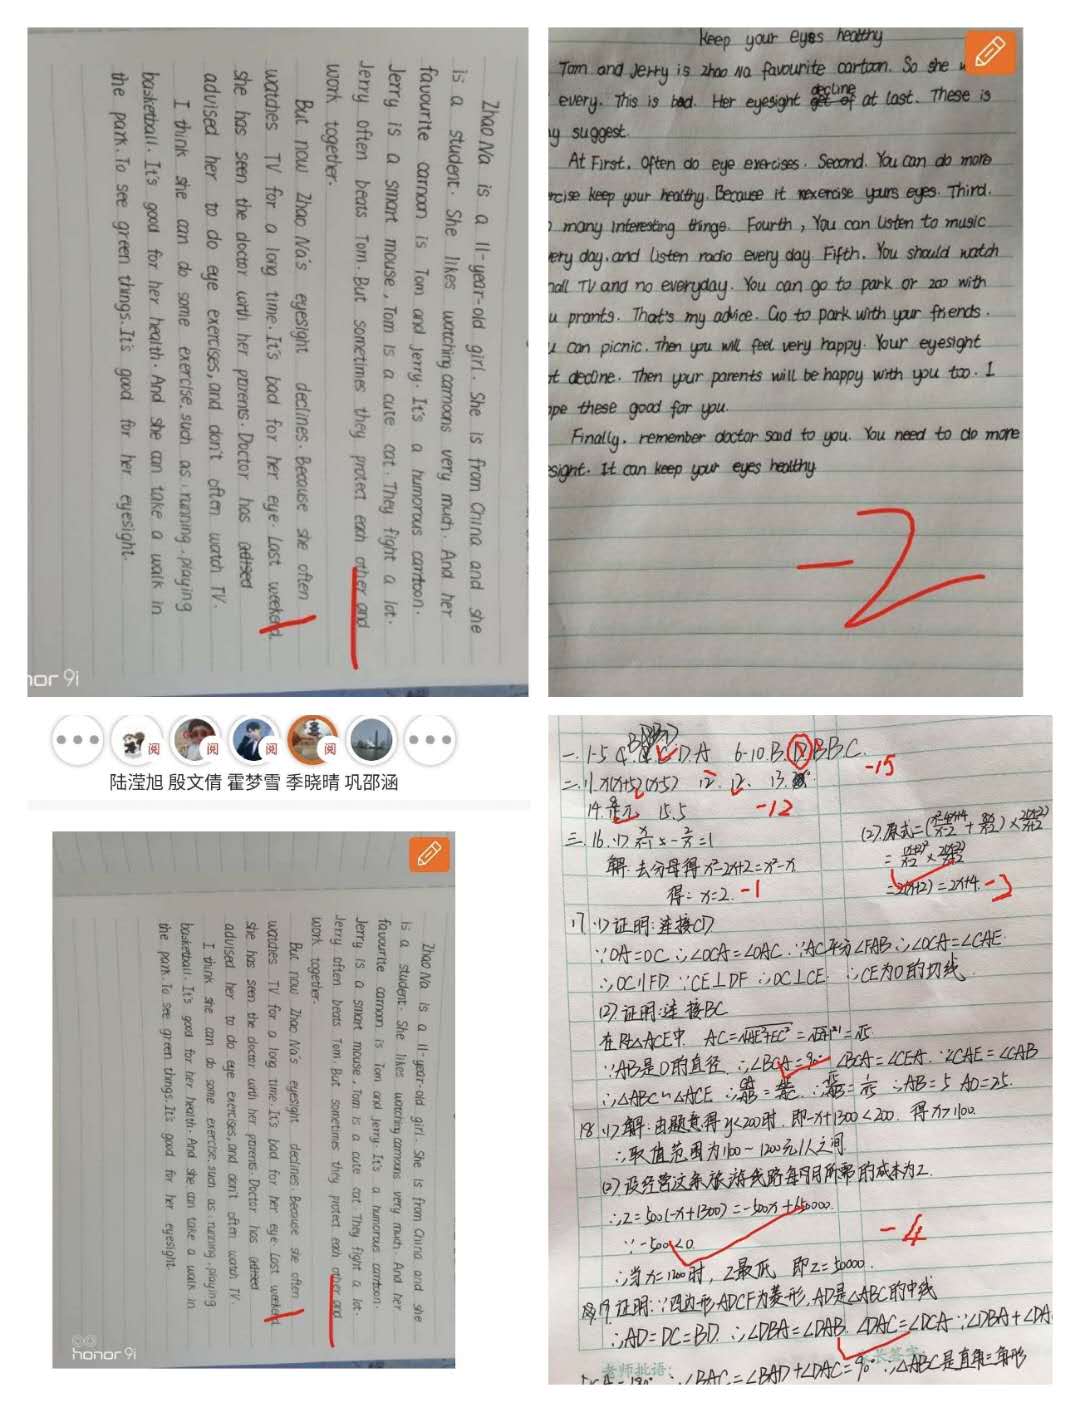 Zhao Na is a 11-year-old girl. She is from China and she
is a student. She likes watching carnoons very much. And her
favourite carnoon is Tom and Jerry. It's a humorous cartoon.
Jerry is a smart mouse, Tom is a cute cat. They fight a lot.
Jerry often beats Tom. But sometimes they protect each other and
work together.
But now Zhao Na's eyesight declines. Because she often
watches TV for a long time. It's bad for her eye. Last weekend
she has seen the doctor with her parents. Doctor has
advised her to do eye exercises, and don't often watch TV.
I think she can do some exercise, such as running, playing
basketball. It's good for her health. And she can take a walk in
the park. To see green things. It's good for her eyesight.
nor 9i
Keep your eyes healthy
Tom and Jerry is Zhao Na favourite cartoon. So she
every. This is bad. Her eyesight decline at last. These is
y suggest.
At First. Often do eye exercises. Second. You can do more
rcise keep your healthy. Because it exercise yours eyes. Third.
many interesting things. Fourth, You can listen to music
ery day, and listen radio every day Fifth. You should watch
nall TV and no everyday. You can go to park or zoo with
u prants. That's my advice. Go to park with your friends.
u can picnic. Then you will feel very happy. Your eyesight
t decline. Then your parents will be happy with you too. I
ope these good for you.
Finally, remember doctor said to you. You need to do more
esight. It can keep your eyes healthy
-2
阅 阅 阅 阅
陆滢旭 殷文倩 霍梦雪 季晓晴 巩邵涵
Zhao Na is a 11-year-old girl. She is from China and she
is a student. She likes watching carnoons very much. And her
favourite carnoon is Tom and Jerry. It's a humorous cartoon.
Jerry is a smart mouse, Tom is a cute cat. They fight a lot.
Jerry often beats Tom. But sometimes they protect each other and
work together.
But now Zhao Na's eyesight declines. Because she often
watches TV for a long time. It's bad for her eye. Last weekend
she has seen the doctor with her parents. Doctor has
advised her to do eye exercises, and don't often watch TV.
I think she can do some exercise, such as running, playing
basketball. It's good for her health. And she can take a walk in
the park. To see green things. It's good for her eyesight.
honor 9i
一. 1-5 D.A 6-10.B.D.B B C. -15
二. 11. x(x+5)(x-5) 12. 13.
14. 15.5 -12
三. 16. (1)
解:去分母得 x²-2x+2=x²-x
得:x=2. -1
(2).原式=
=2(x+2)=2x+4. -2
17. (1)证明:连接CD
∵OA=OC ∴∠OCA=∠OAC. ∵AC平分∠FAB ∴∠OCA=∠CAE
∴OC∥FD ∵CE⊥DF ∴OC⊥CE. ∴CE为O的切线.
(2)证明:连接BC
在Rt△ACE中 AC=√AE²+EC²
∵AB是O的直径 ∴∠BCA=90° ∠BCA=∠CEA. ∵∠CAE=∠CAB
∴△ABC∽△ACE ∴AB=5 AO=2.5.
18. (1)解:由题意得y<200时 即-x+1300<200. 得x>1100.
∴取值范围为1100~1200元/人之间
(2)设经营这条旅游线路每月所需的成本为Z.
∴Z=500(-x+1300)=-500x+650000.
∵-500<0 -4
∴当x=1200时, Z最低 即Z=50000.
19.证明:∵四边形ADCF为菱形, AD是△ABC的中线
∴AD=DC=BD. ∴∠DBA=∠DAB. ∠DAC=∠DCA ∵∠DBA+∠DA
老师批语:
∴∠BAC=∠BAD+∠DAC=90° ∴△ABC是直角三角形